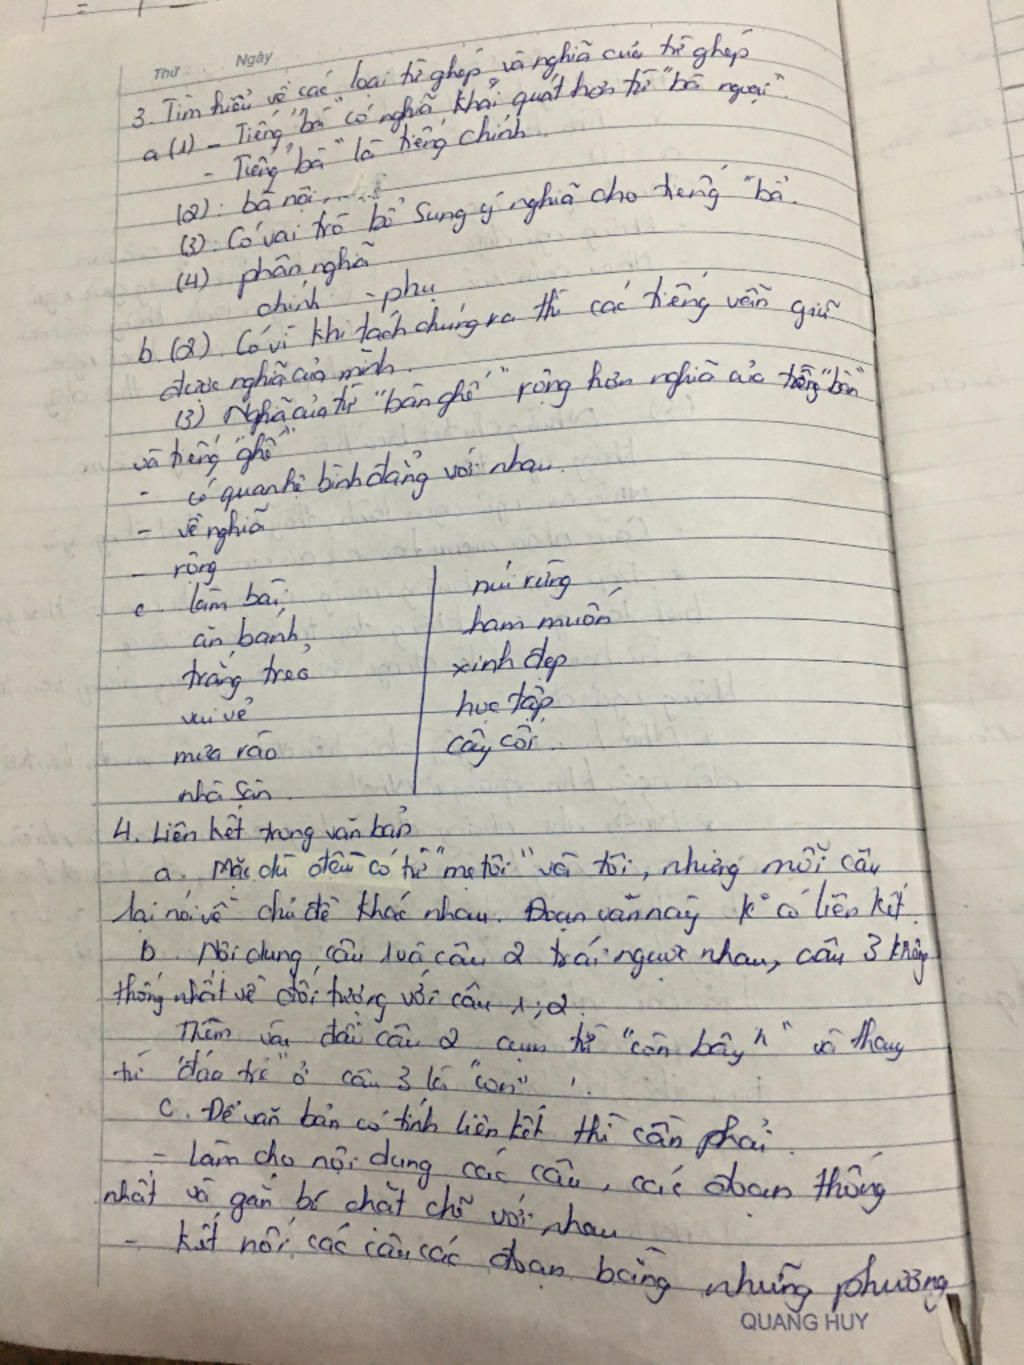 Thứ Ngày
3. Tìm hiểu về các loại từ ghép và nghĩa của từ ghép
a (1) - Tiếng "bà" có nghĩa khái quát hơn từ "bà ngoại".
- Tiếng "bà" là tiếng chính.
(2): bà nội, .....
(3): Có vai trò bổ sung ý nghĩa cho tiếng "bà.
(4) phân nghĩa
chính - phụ
b (2). Có vì khi tách chúng ra thì các tiếng vẫn giữ
được nghĩa của mình.
(3) Nghĩa của từ "bàn ghế" rộng hơn nghĩa của tiếng "bàn"
và tiếng "ghế"
- có quan hệ bình đẳng với nhau.
- về nghĩa
- rộng
c. làm bài, núi rừng
ăn bánh, ham muốn,
trăng treo xinh đẹp
vui vẻ học tập
mưa rào cây cối.
nhà sàn.
4. Liên kết trong văn bản
a. Mặc dù đều có từ "mẹ tôi" và tôi, nhưng mỗi câu
lại nói về chủ đề khác nhau. Đoạn văn này k° có liên kết.
b. Nội dung câu 1 và câu 2 trái ngược nhau, câu 3 không
thống nhất về đối tượng với câu 1; 2.
Thêm vào đầu câu 2 cụm từ "còn bây h" và thay
từ "đứa trẻ" ở câu 3 là "con".
c. Để văn bản có tính liên kết thì cần phải.
- làm cho nội dung các câu, các đoạn thống
nhất và gắn bó chặt chẽ với nhau
- kết nối các câu các đoạn bằng những phương
QUANG HUY